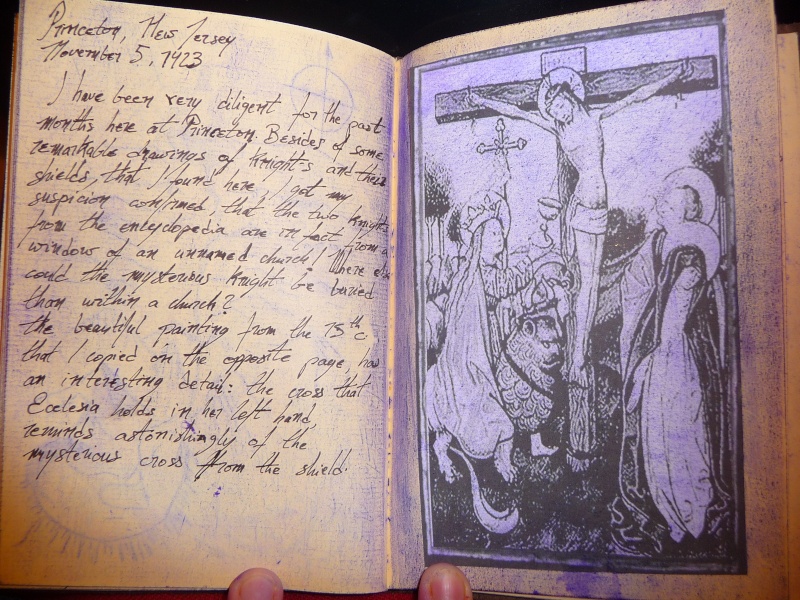 Princeton, New Jersey
November 5, 1923
I have been very diligent for the past
months here at Princeton. Besides of some
remarkable drawings of knights and their
shields, that I found here, I got my
suspicion confirmed, that the two knights
from the encyclopedia are in fact from a
window of an unnamed church! Where else
could the mysterious knight be buried
than within a church?
The beautiful painting from the 15th c,
that I copied on the opposite page, has
an interesting detail: the cross that
Ecclesia holds in her left hand,
reminds astonishingly of the
mysterious cross from the shield.